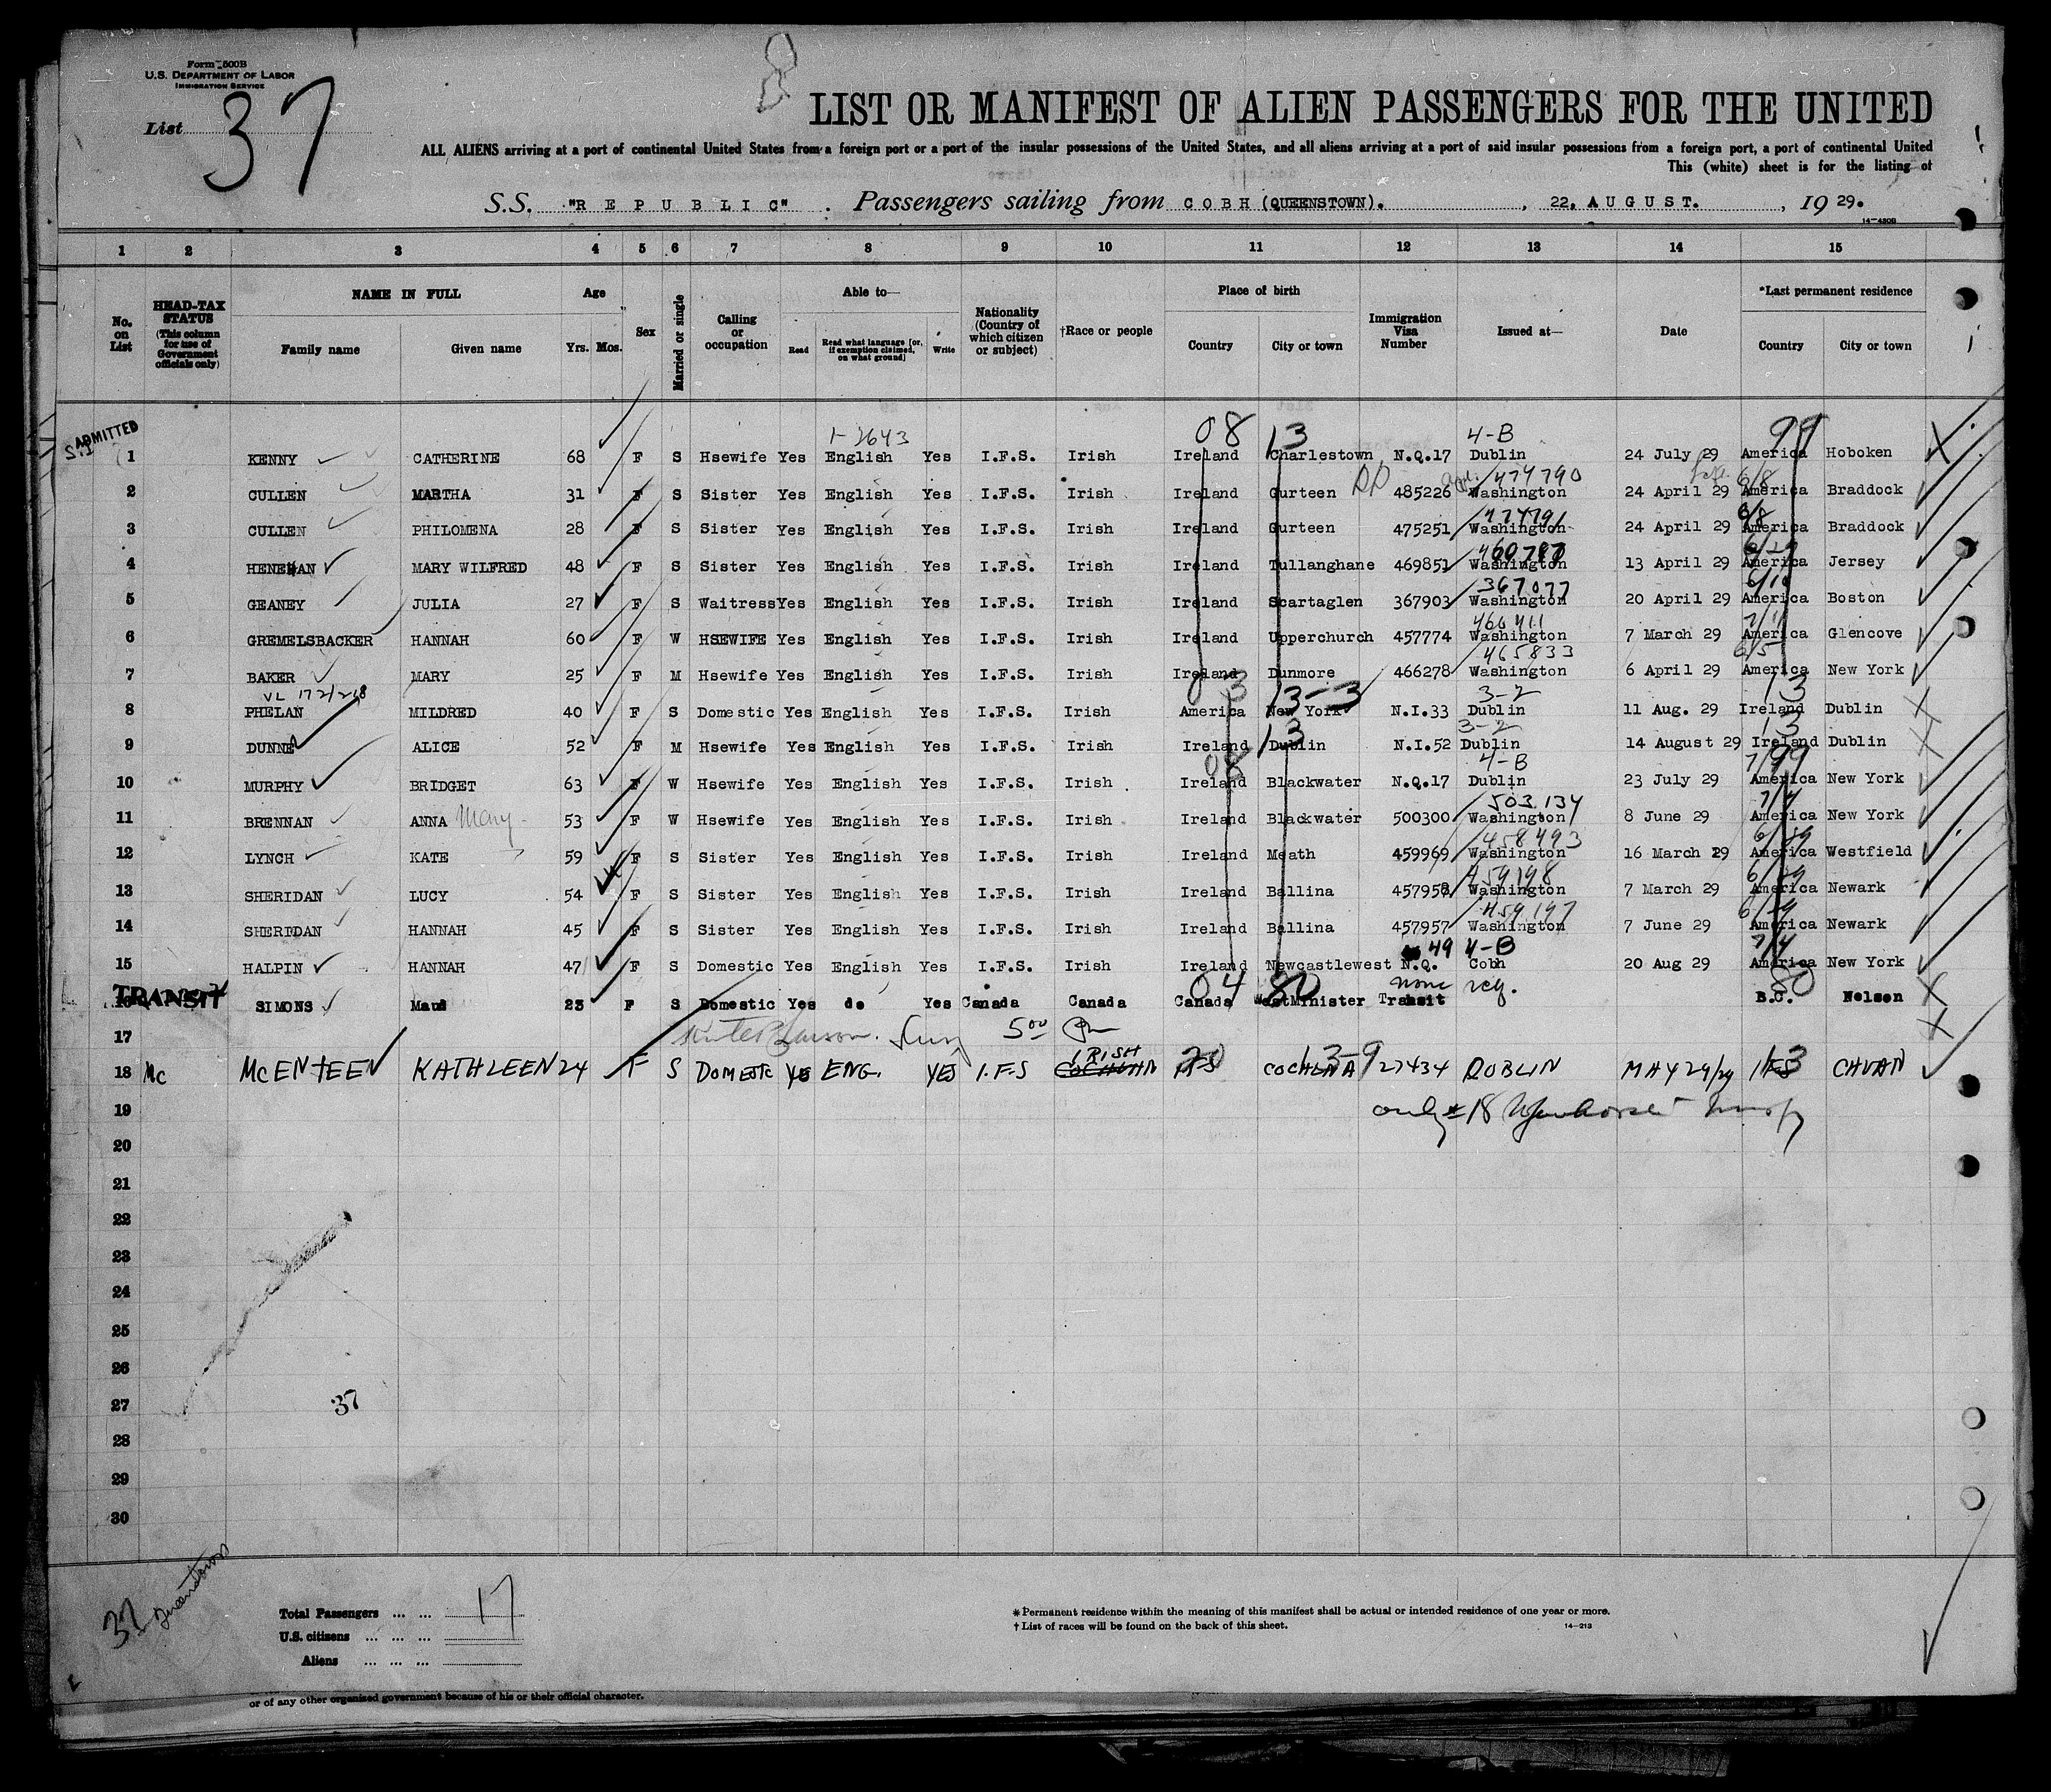 Form 500B
U.S. DEPARTMENT OF LABOR
IMMIGRATION SERVICE
List 37
LIST OR MANIFEST OF ALIEN PASSENGERS FOR THE UNITED
ALL ALIENS arriving at a port of continental United States from a foreign port or a port of the insular possessions of the United States, and all aliens arriving at a port of said insular possessions from a foreign port, a port of continental United
This (white) sheet is for the listing of
S.S. "REPUBLIC". Passengers sailing from COBH (QUEENSTOWN). , 22, AUGUST. , 19 29.
14—430B
1 2 3 4 5 6 7 8 9 10 11 12 13 14 15
No. on List
HEAD-TAX STATUS (This column for use of Government officials only)
NAME IN FULL Family name Given name
Age Yrs. Mos.
Sex
Married or single
Calling or occupation
Able to— Read Read what language [or, if exemption claimed, on what ground] Write
Nationality (Country of which citizen or subject)
†Race or people
Place of birth Country City or town
Immigration Visa Number
Issued at—
Date
*Last permanent residence Country City or town
ADMITTED S.I
1-2643 08 13 4-B 99
1 KENNY CATHERINE 68 F S Hsewife Yes English Yes I.F.S. Irish Ireland Charlestown N.Q.17 Dublin 24 July 29 America Hoboken
474790 6/8
2 CULLEN MARTHA 31 F S Sister Yes English Yes I.F.S. Irish Ireland Gurteen 485226 Washington 24 April 29 America Braddock
47479/ 6/8
3 CULLEN PHILOMENA 28 F S Sister Yes English Yes I.F.S. Irish Ireland Gurteen 475251 Washington 24 April 29 America Braddock
4 HENEHAN MARY WILFRED 48 F S Sister Yes English Yes I.F.S. Irish Ireland Tullanghane 469851 Washington 13 April 29 America Jersey
367077
5 GEANEY JULIA 27 F S Waitress Yes English Yes I.F.S. Irish Ireland Scartaglen 367903 Washington 20 April 29 America Boston
466411 7/11
6 GREMELSBACKER HANNAH 60 F W HSEWIFE Yes English Yes I.F.S. Irish Ireland Upperchurch 457774 Washington 7 March 29 America Glencove
465833 6/5
7 BAKER MARY 25 F M Hsewife Yes English Yes I.F.S. Irish Ireland Dunmore 466278 Washington 6 April 29 America New York
VL 172/218 03 13-3 3-2 13
8 PHELAN MILDRED 40 F S Domestic Yes English Yes I.F.S. Irish America New York N.I.33 Dublin 11 Aug. 29 Ireland Dublin
13 3-2 13
9 DUNNE ALICE 52 F M Hsewife Yes English Yes I.F.S. Irish Ireland Dublin N.I.52 Dublin 14 August 29 Ireland Dublin
08 4-B 99
10 MURPHY BRIDGET 63 F W Hsewife Yes English Yes I.F.S. Irish Ireland Blackwater N.Q.17 Dublin 23 July 29 America New York
503134 7/4
11 BRENNAN ANNA Mary 53 F W Hsewife Yes English Yes I.F.S. Irish Ireland Blackwater 500300 Washington 8 June 29 America New York
458493 6/29
12 LYNCH KATE 59 F S Sister Yes English Yes I.F.S. Irish Ireland Meath 459969 Washington 16 March 29 America Westfield
459198 6/29
13 SHERIDAN LUCY 54 F S Sister Yes English Yes I.F.S. Irish Ireland Ballina 457958 Washington 7 March 29 America Newark
459197 6/29
14 SHERIDAN HANNAH 45 F S Sister Yes English Yes I.F.S. Irish Ireland Ballina 457957 Washington 7 June 29 America Newark
49 4-B 7/4
15 HALPIN HANNAH 47 F S Domestic Yes English Yes I.F.S. Irish Ireland Newcastlewest N.Q. Cobh 20 Aug 29 America New York
04 80 none req. 80
TRANSIT 16 SIMONS Maud 23 F S Domestic Yes do Yes Canada Canada Canada WestMinister Transit B.C. Nelson
17 5 00
IRISH
18 Mc McENTEEN KATHLEEN 24 F S DOMESTC YES ENG. YES I.F.S 13-9 27434 DUBLIN MAY 29/29 13 CAVAN
only # 18
19
20
21
22
23
24
25
26
27 37
28
29
30
37 Queenstown
Total Passengers ... ... 17
U.S. citizens ... ... ...
Aliens ... ... ...
* Permanent residence within the meaning of this manifest shall be actual or intended residence of one year or more.
† List of races will be found on the back of this sheet. 14—213
or of any other organized government because of his or their official character.